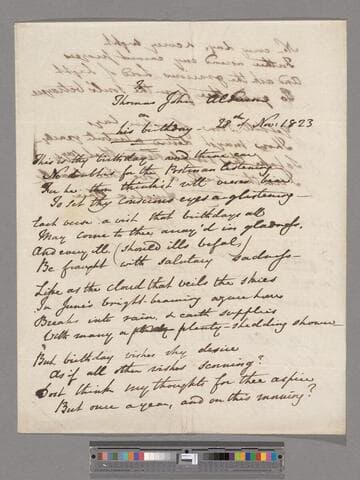 To
Thomas John
on
his birthday 28th of Nov: 1823
This is thy birthday and thine ear
No doubt is for the Postman listening
For he thou think'st will verses bear
To set thy conscious eyes a glistening
Each verse a wish that birthdays all
May come to thee array'd in gladness
And every ill (should ills befal)
Be fraught with salutary Sadness
Like as the cloud that veils the skies
In June's bright-beaming
Breaks into rain, & earth supplies
With many a plenty-shedding shower
But birthday wishes why desire
As if all other wishes scorning?
Dost think my thoughts for thee aspire
But once a year, and on this morning?